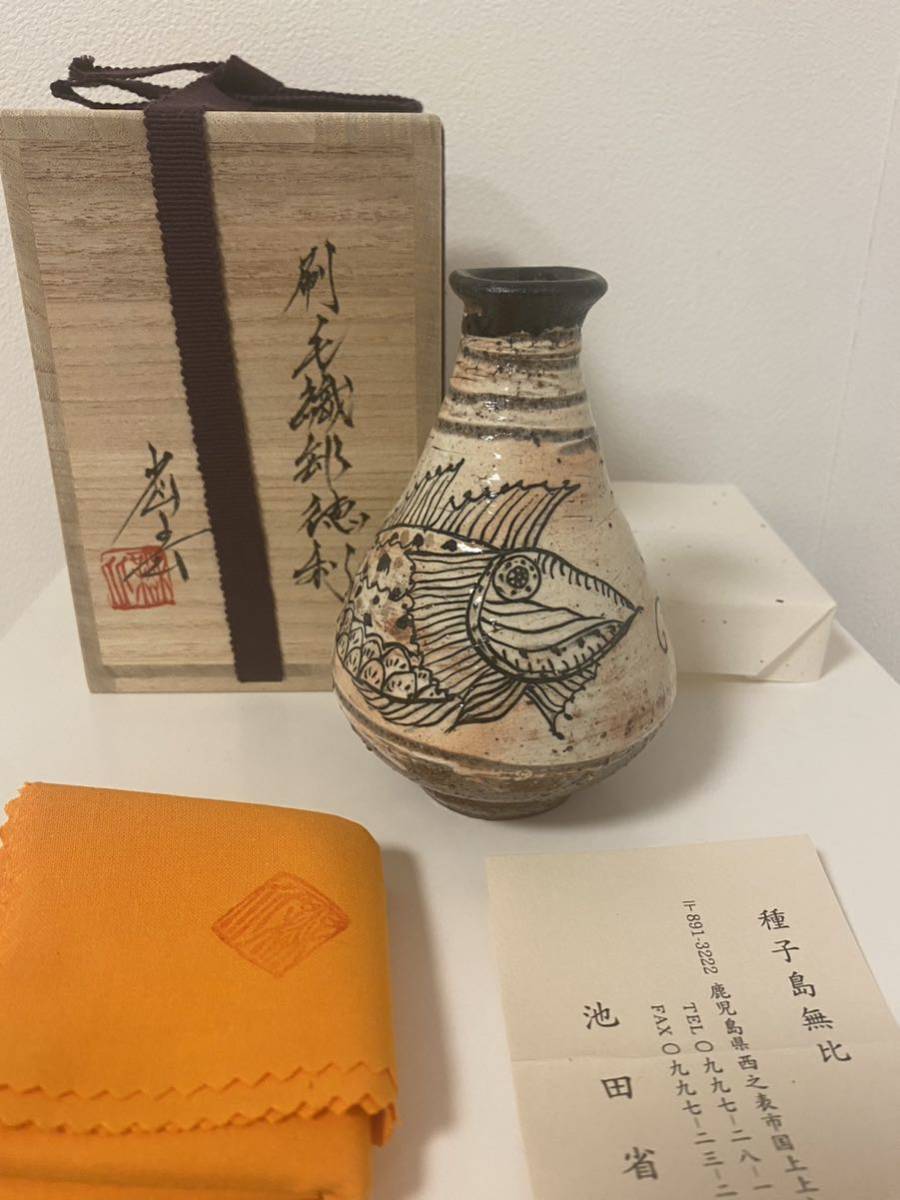 刷毛織部徳利
種子島無比
〒891-3222 鹿児島県西之表市国上上
TEL〇九九七-二八-一
FAX〇九九七-二三-二
池田省